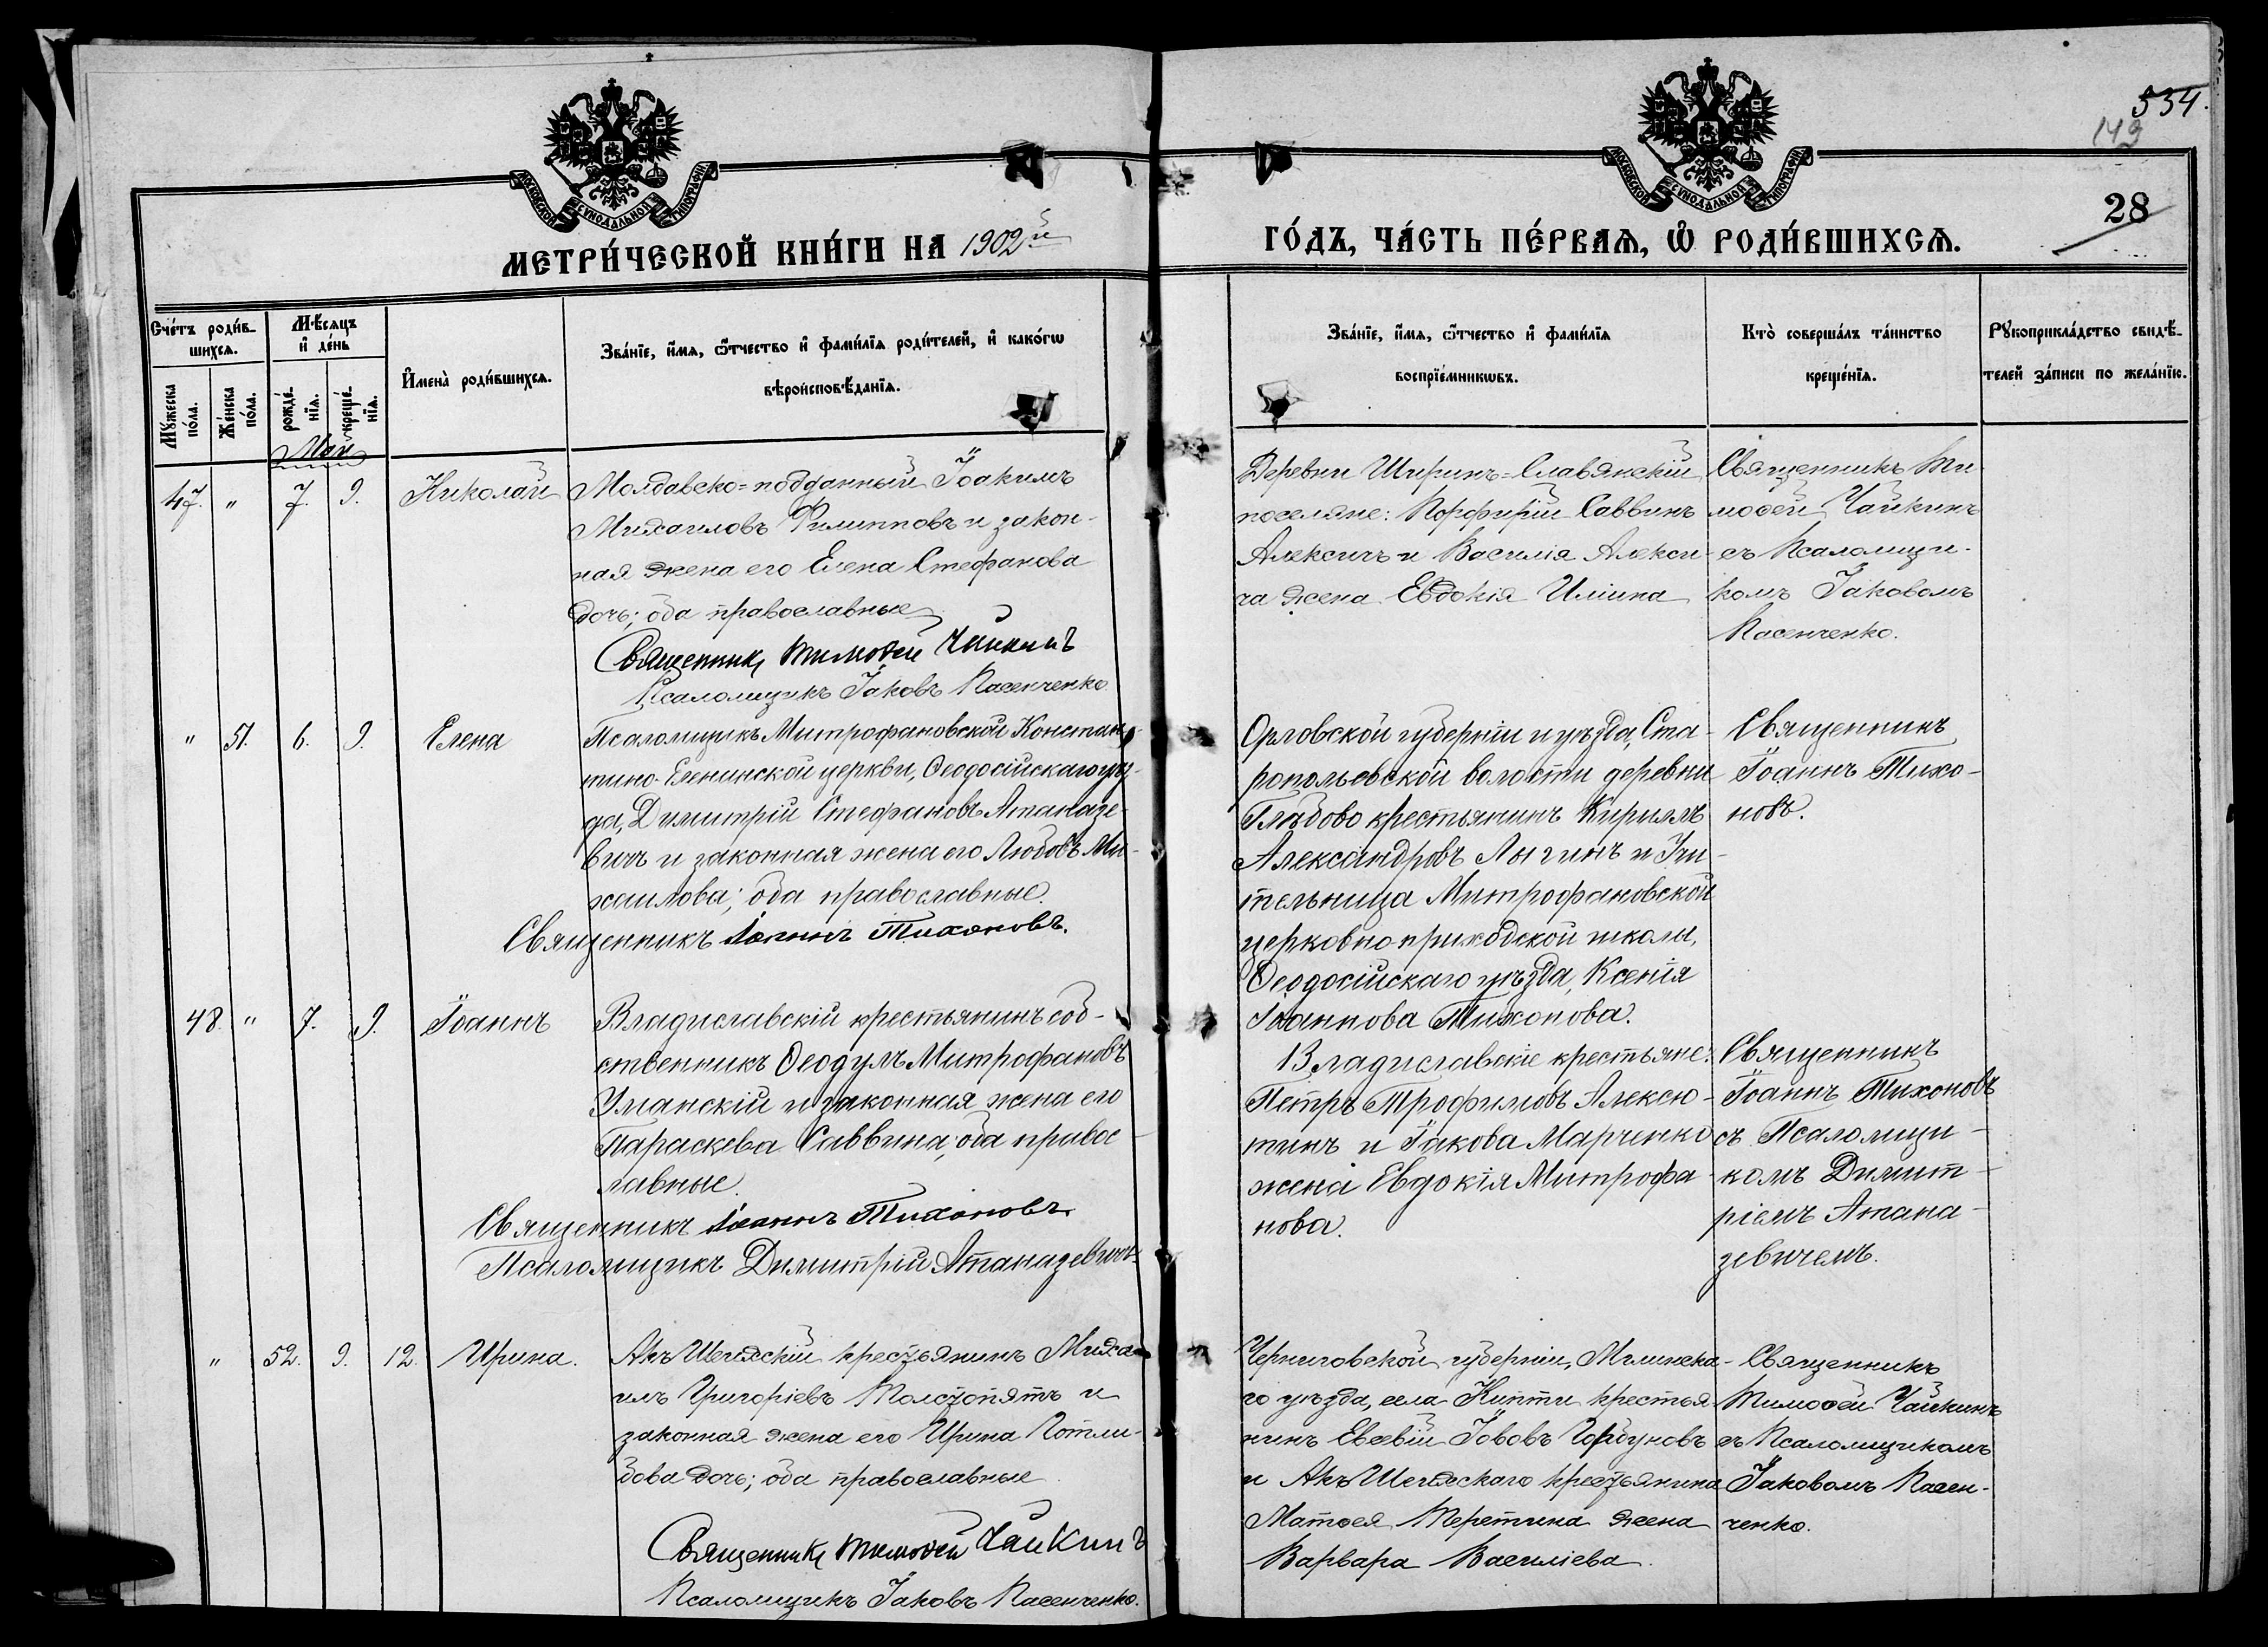 534.
149
28
МОСКОВСКОЙ СѴНОДАЛЬНОЙ ТИПОГРАФІИ
МОСКОВСКОЙ СѴНОДАЛЬНОЙ ТИПОГРАФІИ
МЕТРИ́ЧЕСКОЙ КНИ́ГИ НА 1902й
ГО́ДЪ, ЧА́СТЬ ПЕ́РВАѦ, Ѡ҆ РОДИ́ВШИХСѦ.
Счетъ роди́в-
шихсѧ.
Мꙋ́жеска по́ла.
Же́нска по́ла.
Мѣ́сѧцъ
и҆ де́нь
рожде́-
нїѧ.
креще́-
нїѧ.
И҆мена̀ роди́вшихсѧ.
Зва́нїе, и҆́мѧ, ѻ҆́тчество и҆ фамі́лїѧ роди́телей, и҆ како́гѡ
вѣроисповѣ́данїѧ.
Зва́нїе, и҆́мѧ, ѻ҆́тчество и҆ фамі́лїѧ
воспрїе́мникѡвъ.
Кто̀ соверша́лъ та́инство
креще́нїѧ.
Рꙋкоприкла́дство свидѣ́-
телей за́писи по жела́нїю.
Май
47. " 7. 9. Николай
Молдавско=подданный Іоакимъ
Михаиловъ Филипповъ и закон-
ная жена его Елена Стефанова
дочь; оба православные
Священникъ Тимоѳей Чайкинъ
Псаломщикъ Іаковъ Пасенченко
Деревни Ширинъ=Славянскій
поселяне: Порфирій Саввинъ
Алексичъ и Василія Алекси-
ча жена Евдокія Иліина
Священникъ Ти-
моѳей Чайкинъ
съ Псаломщи-
комъ Іаковомъ
Пасенченко.
" 51. 6. 9. Елена
Псаломщикъ Митрофановской Констан-
тино-Еленинской церкви, Ѳеодосійскаго уѣз-
да, Димитрій Стефановъ Атаназе-
вичъ и законная жена его Любовь Ми-
хаилова; оба православные.
Священникъ Іоаннъ Тихоновъ.
Орловской губерніи и уѣзда, Ста-
ропольевской волости деревни
Глѣбово крестьянинъ Кириллъ
Александровъ Лыгинъ и Учи-
тельница Митрофановской
церковно-приходской школы,
Ѳеодосійскаго уѣзда, Ксенія
Іоаннова Тихонова.
Священникъ
Іоаннъ Тихо-
новъ.
48 " 7. 9. Іоаннъ
Владиславскій крестьянинъ соб-
ственникъ Ѳеодулъ Митрофановъ
Уманскій и законная жена его
Параскева Саввина; оба правос-
лавные.
Священникъ Іоаннъ Тихоновъ.
Псаломщикъ Димитрій Атаназевичъ
Владиславскіе крестьяне:
Петръ Трофимовъ Алексю-
тинъ и Іакова Марченко
жена Евдокія Митрофа-
нова.
Священникъ
Іоаннъ Тихоновъ
съ Псаломщи-
комъ Димит-
ріемъ Атана-
зевичемъ.
" 52. 9. 12. Ирина.
Акъ Шеихскій крестьянинъ Миха-
илъ Григоріевъ Толстопятъ и
законная жена его Ирина Готли-
бова дочь; оба православные
Священникъ Тимоѳей Чайкинъ
Псаломщикъ Іаковъ Пасенченко.
Черниговской губерніи, Мглинска-
го уѣзда, села Кипти крестья-
нинъ Евсевій Іововъ Горбуновъ
и Акъ Шеихскаго крестьянина
Матѳея Теретина жена
Варвара Василіева.
Священникъ
Тимоѳей Чайкинъ
съ Псаломщикомъ
Іаковомъ Пасен-
ченко.